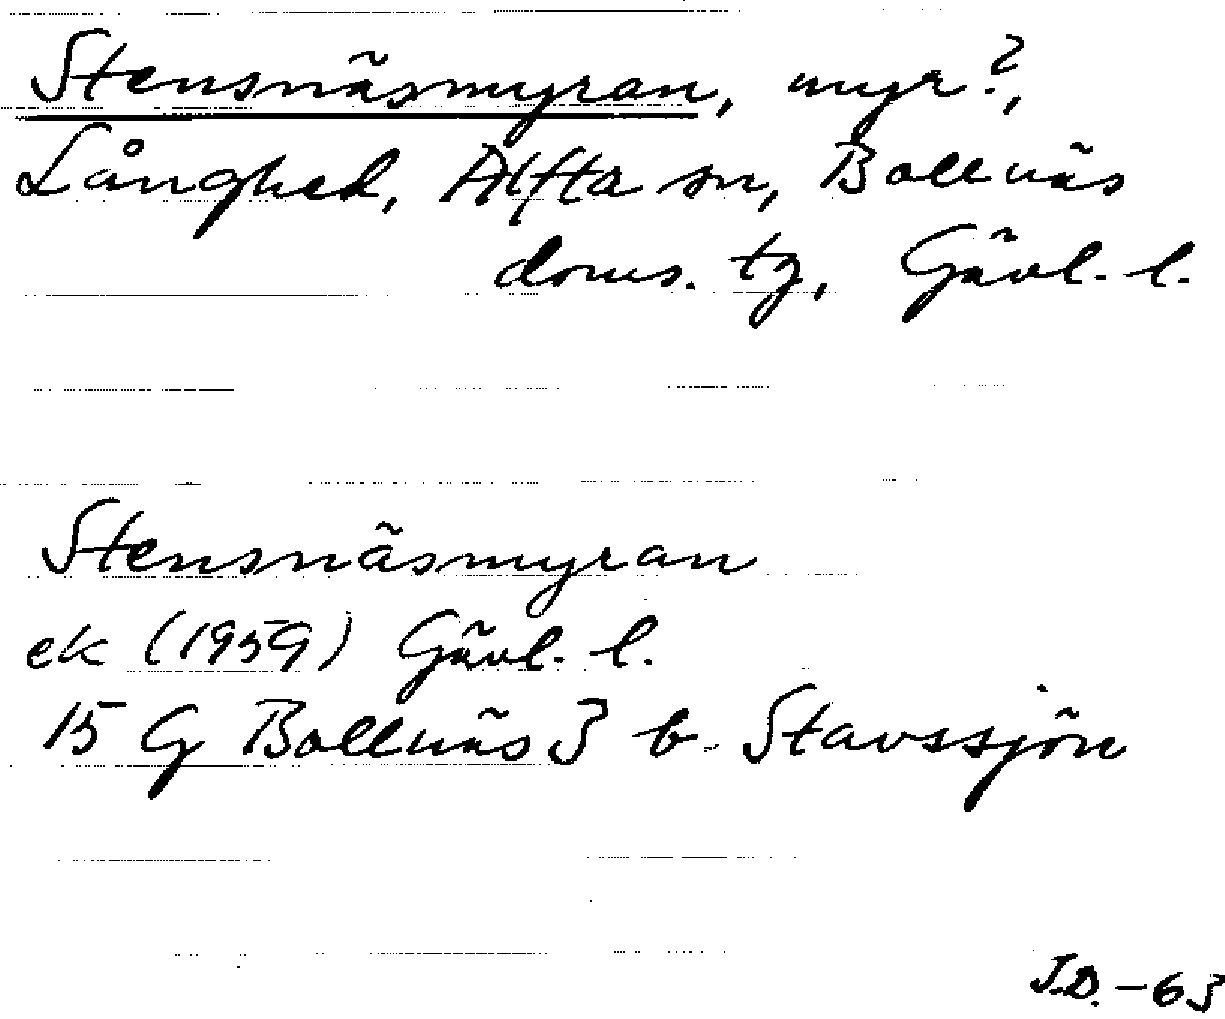 Stensnäsmyran, myr?,
Långhed, Alfta sn, Bollnäs
doms. tg, Gävl. l.
Stensnäsmyran
ek (1959) Gävl. l.
15 G Bollnäs 3 b. Stavssjön
J.D. -63